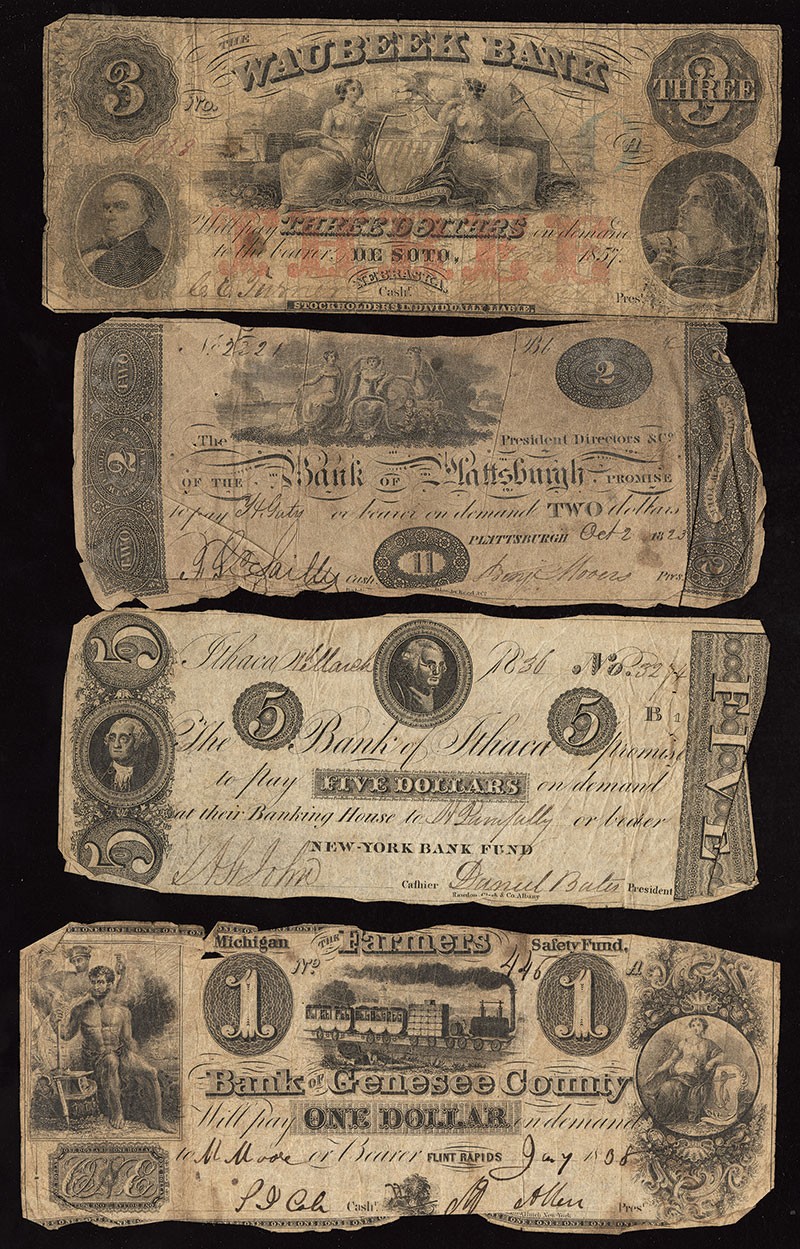 THE
WAUBEEK BANK
3
No.
3
THREE
A
Will pay THREE DOLLARS on demand
to the bearer, DE SOTO, 1857.
NEBRASKA,
Cashr. Prest.
STOCKHOLDERS INDIVIDUALLY LIABLE.
TWO
2
TWO
2
The President Directors & Co.
OF THE Bank OF Plattsburgh PROMISE
to pay or bearer on demand TWO dollars
PLATTSBURGH Oct 2 1823
11
Cash. Benj Mooers Pres.
5
Ithaca 1836 No.
5 5
B 1
FIVE
The Bank of Ithaca promise
to pay FIVE DOLLARS on demand
at their Banking House to or bearer
NEW-YORK BANK FUND
Cashier Daniel Bates President
Rawdon, Clark & Co. Albany
5
Michigan THE Farmers Safety Fund.
No 446 A
1 1
Bank OF Genesee County
Will pay ONE DOLLAR on demand
to M Moore or Bearer FLINT RAPIDS Jany 1838
ONE
Cashr. Allen Prest.